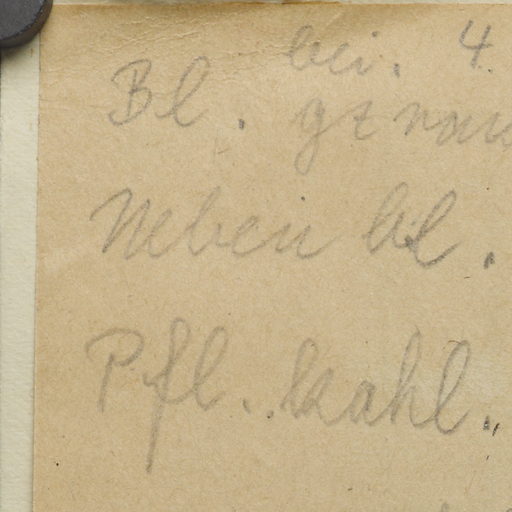 bei. 4
Bl.
Nebenbl.
Pfl. kahl.